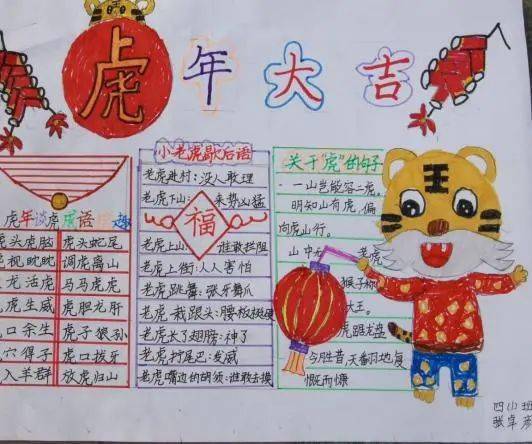 虎年大吉
虎年谈虎成语 趣
头虎脑 虎头蛇尾
视眈眈 调虎离山
龙活虎 马马虎虎
虎生威 虎胆龙肝
口余生 虎子狼孙
穴得子 虎口拔牙
入羊群 放虎归山
小老虎歇后语
老虎进村:没人敢理
老虎下山: 来势凶猛
福
老虎上山: 谁敢拦阻
老虎上街:人人害怕
老虎跳舞:张牙舞爪
老虎栽跟头:腰板挺硬
老虎长了翅膀:神了
老虎拧尾巴:发威
老虎嘴边的胡须:谁敢去摸
关于“虎”的句子
一山岂能容二虎。
明知山有虎,偏
向虎山行。
山中无 老虎
猴子称
大王。
虎踞龙盘
今胜昔天翻地覆
慨而慷
王
班
张卓